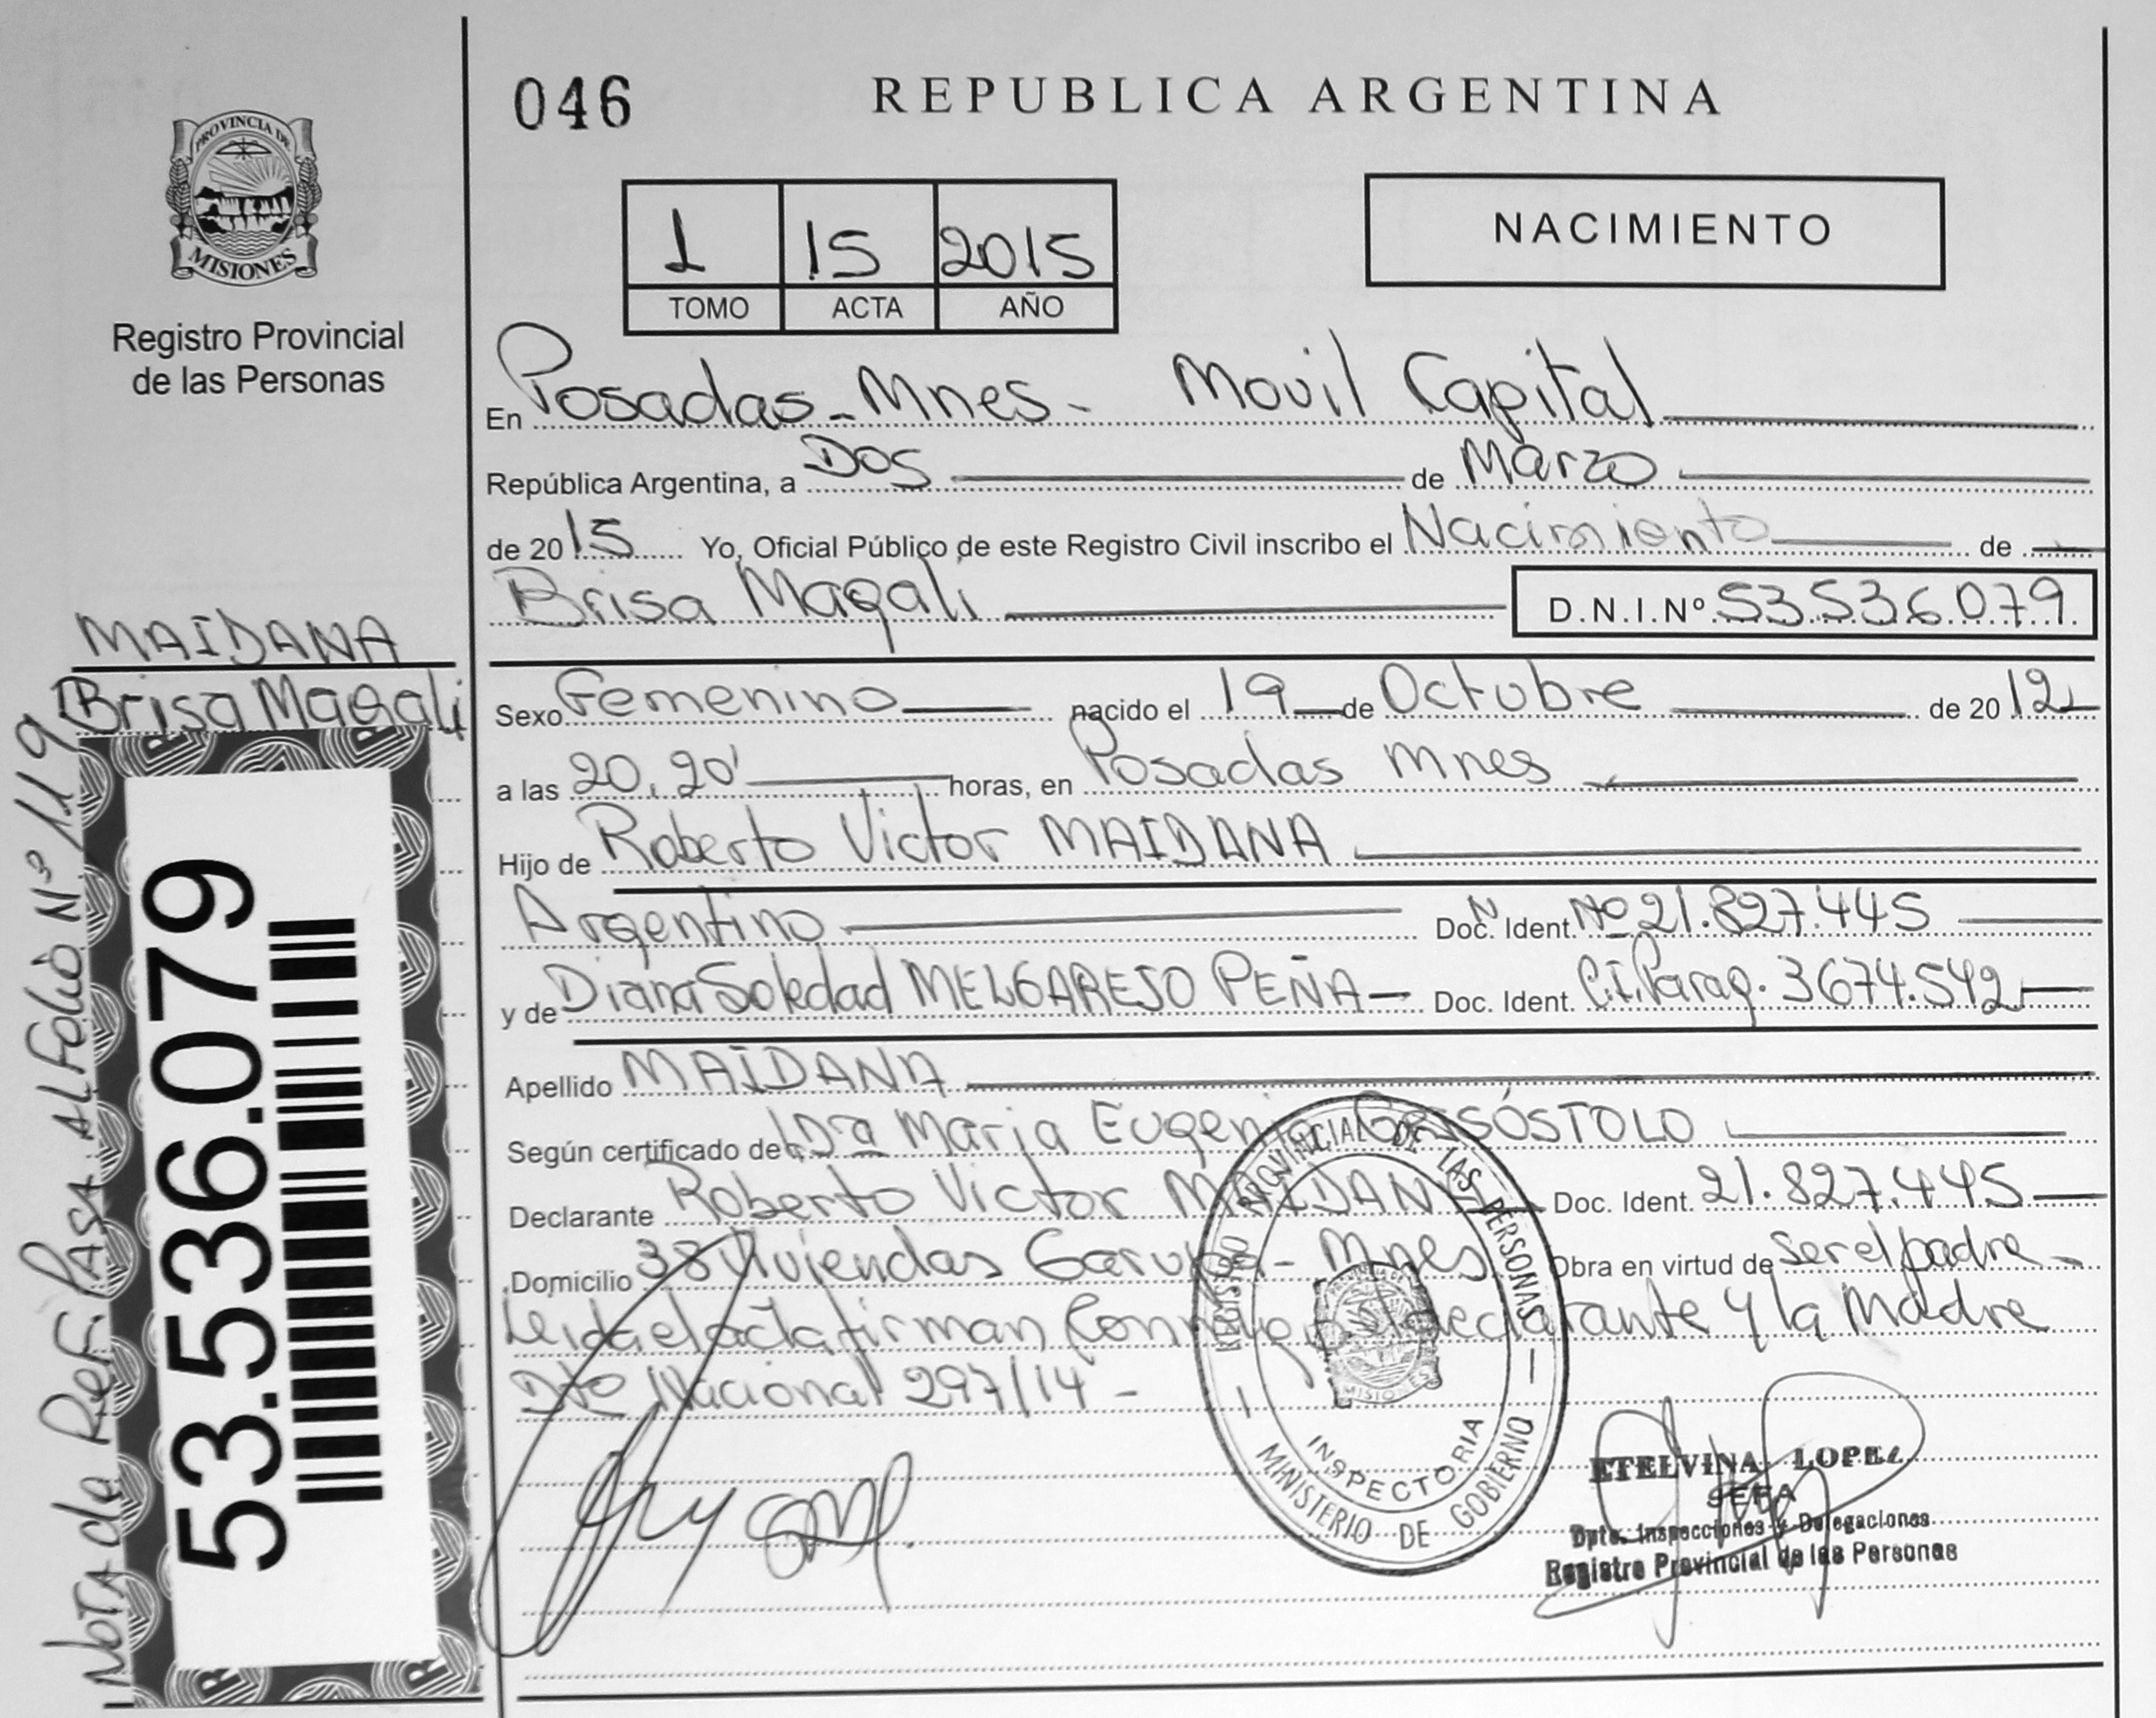 046
REPUBLICA ARGENTINA
PROVINCIA DE
MISIONES
Registro Provincial
de las Personas
1 15 2015
TOMO ACTA AÑO
NACIMIENTO
En Posadas - Mnes - Movil Capital
República Argentina, a Dos de Marzo
de 2015 Yo, Oficial Público de este Registro Civil inscribo el Nacimiento de
Brisa Magali D.N.I.Nº 53.536.079
MAIDANA
Brisa Magali
Sexo Femenino nacido el 19 de Octubre de 2012
a las 20,20' horas, en Posadas Mnes
Hijo de Roberto Victor MAIDANA
Argentino Doc. N Ident. Nº 21.827.445
y de Diana Soledad MELGAREJO PEÑA Doc. Ident. C.I. Parag. 3674.542
Apellido MAIDANA
Según certificado de Dra Maria Eugenia
Declarante Roberto Victor MAIDANA Doc. Ident. 21.827.445
Domicilio 38 Viviendas Garupa - Mnes Obra en virtud de ser el padre
Leida el acta firman Conmigo el declarante y la Madre
Dto Nacional 297/14 -
REGISTRO PROVINCIAL DE LAS PERSONAS
MINISTERIO DE GOBIERNO
INSPECTORIA
MISIONES
ETELVINA LOPEZ
JEFA
Dpto. Inspecciones y Delegaciones
Registro Provincial de las Personas
53.536.079
Nota de Ref. Pasa al Folio Nº 119